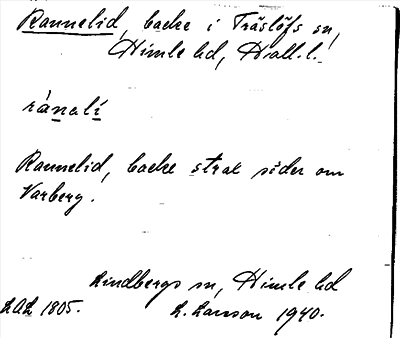 Rannelid, backe i Träslöfs sn,
Himle hd, Hall. l.
ránalí
Rannelid, backe strax söder om
Varberg.
Lindbergs sn, Himle hd
LAL 1805. L. Larsson 1940.